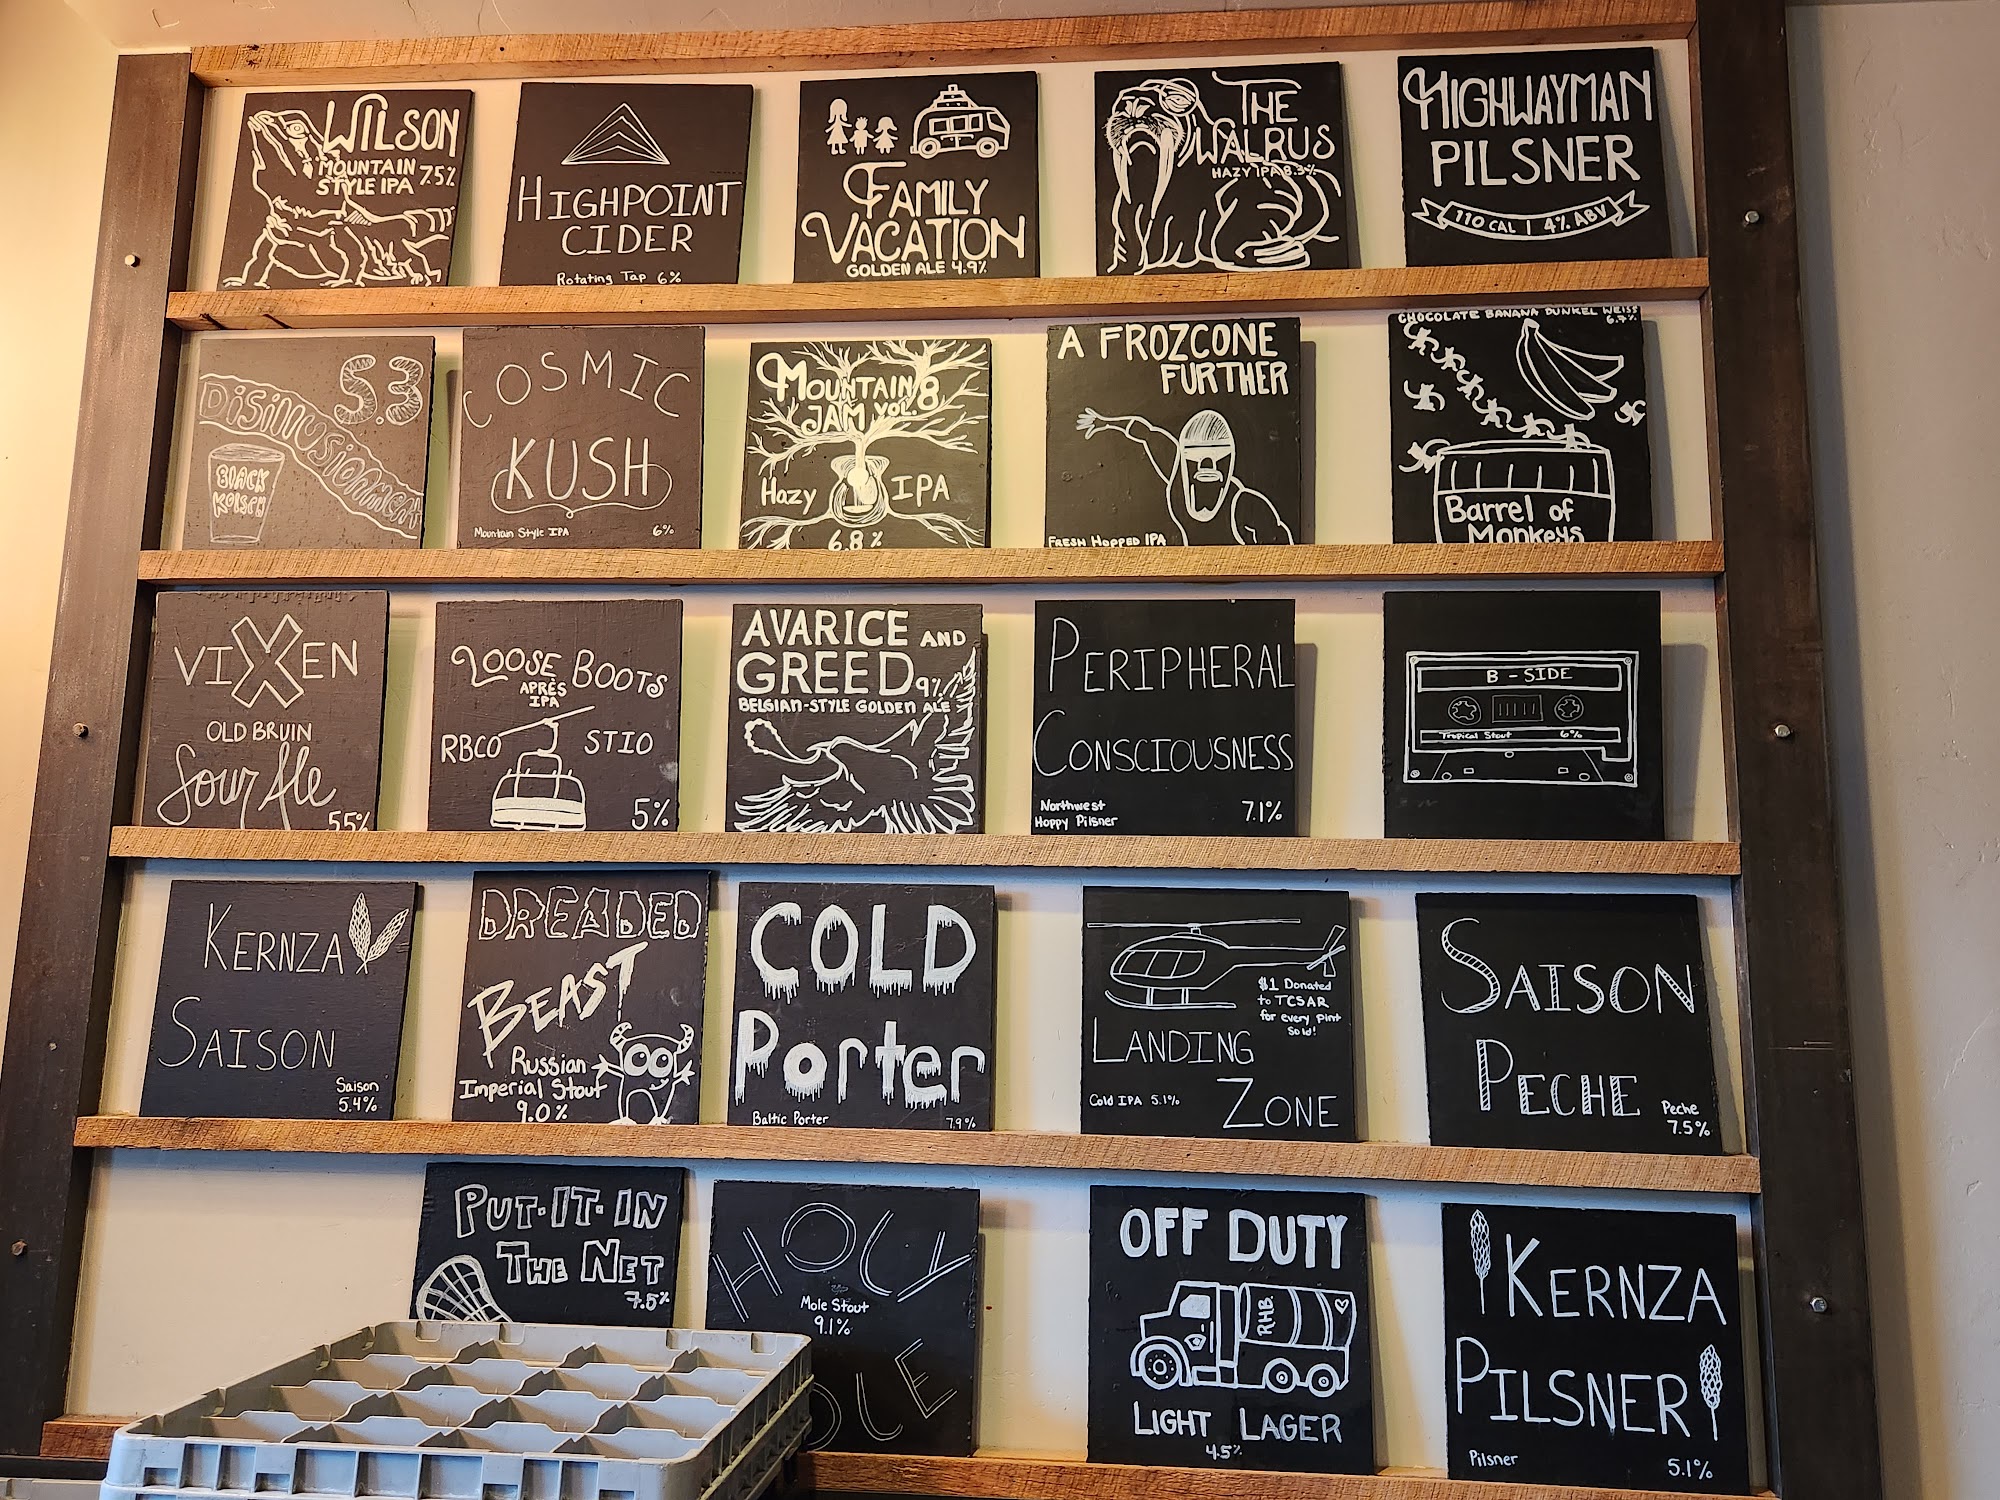 WILSON
MOUNTAIN
STYLE IPA 7.5%
HIGHPOINT
CIDER
Rotating Tap 6%
FAMILY
VACATION
GOLDEN ALE 4.9%
THE
WALRUS
HAZY IPA 8.3%
HIGHWAYMAN
PILSNER
110 CAL | 4% ABV
5.3
Disillusionment
BLACK
KOLSCH
COSMIC
KUSH
Mountain Style IPA 6%
MOUNTAIN
JAM VOL. 8
Hazy IPA
6.8%
A FROZCONE
FURTHER
FRESH HOPPED IPA
CHOCOLATE BANANA DUNKEL WEISS
6.7%
Barrel of
Monkeys
VIXEN
OLD BRUIN
Sour Ale
5.5%
LOOSE BOOTS
APRÈS
IPA
RBCO STIO
5%
AVARICE AND
GREED 9%
BELGIAN-STYLE GOLDEN ALE
PERIPHERAL
CONSCIOUSNESS
Northwest
Hoppy Pilsner 7.1%
B-SIDE
Tropical Stout 6%
KERNZA
SAISON
Saison
5.4%
DREADED
BEAST
Russian
Imperial Stout
9.0%
COLD
Porter
Baltic Porter 7.9%
$1 Donated
to TCSAR
for every pint
sold!
LANDING
ZONE
Cold IPA 5.1%
SAISON
PECHE
Peche
7.5%
PUT-IT-IN
THE NET
7.5%
HOLY
Mole Stout
9.1%
OLE
OFF DUTY
RHB.
LIGHT LAGER
4.5%
KERNZA
PILSNER
Pilsner 5.1%